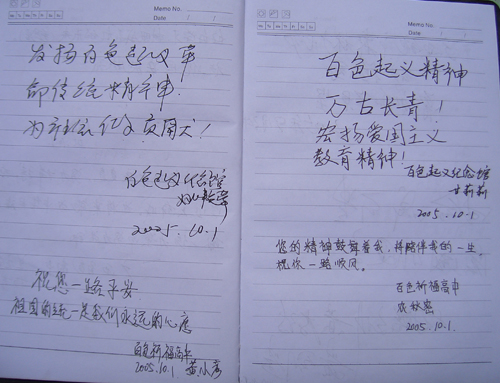 Memo No.
Date
发扬百色起义革
命传统精神
祝您一路平安
祖国的统一是我们永远的心愿
百色祈福高中
2005.10.1 黄小彦
2005.10.1
Memo No.
Date
百色起义精神
万古长青！
宏扬爱国主义
教育精神！
百色起义纪念馆
甘莉莉
2005.10.1
您的精神鼓舞着我，并陪伴我的一生。
祝你一路顺风。
百色祈福高中
农秋密
2005.10.1